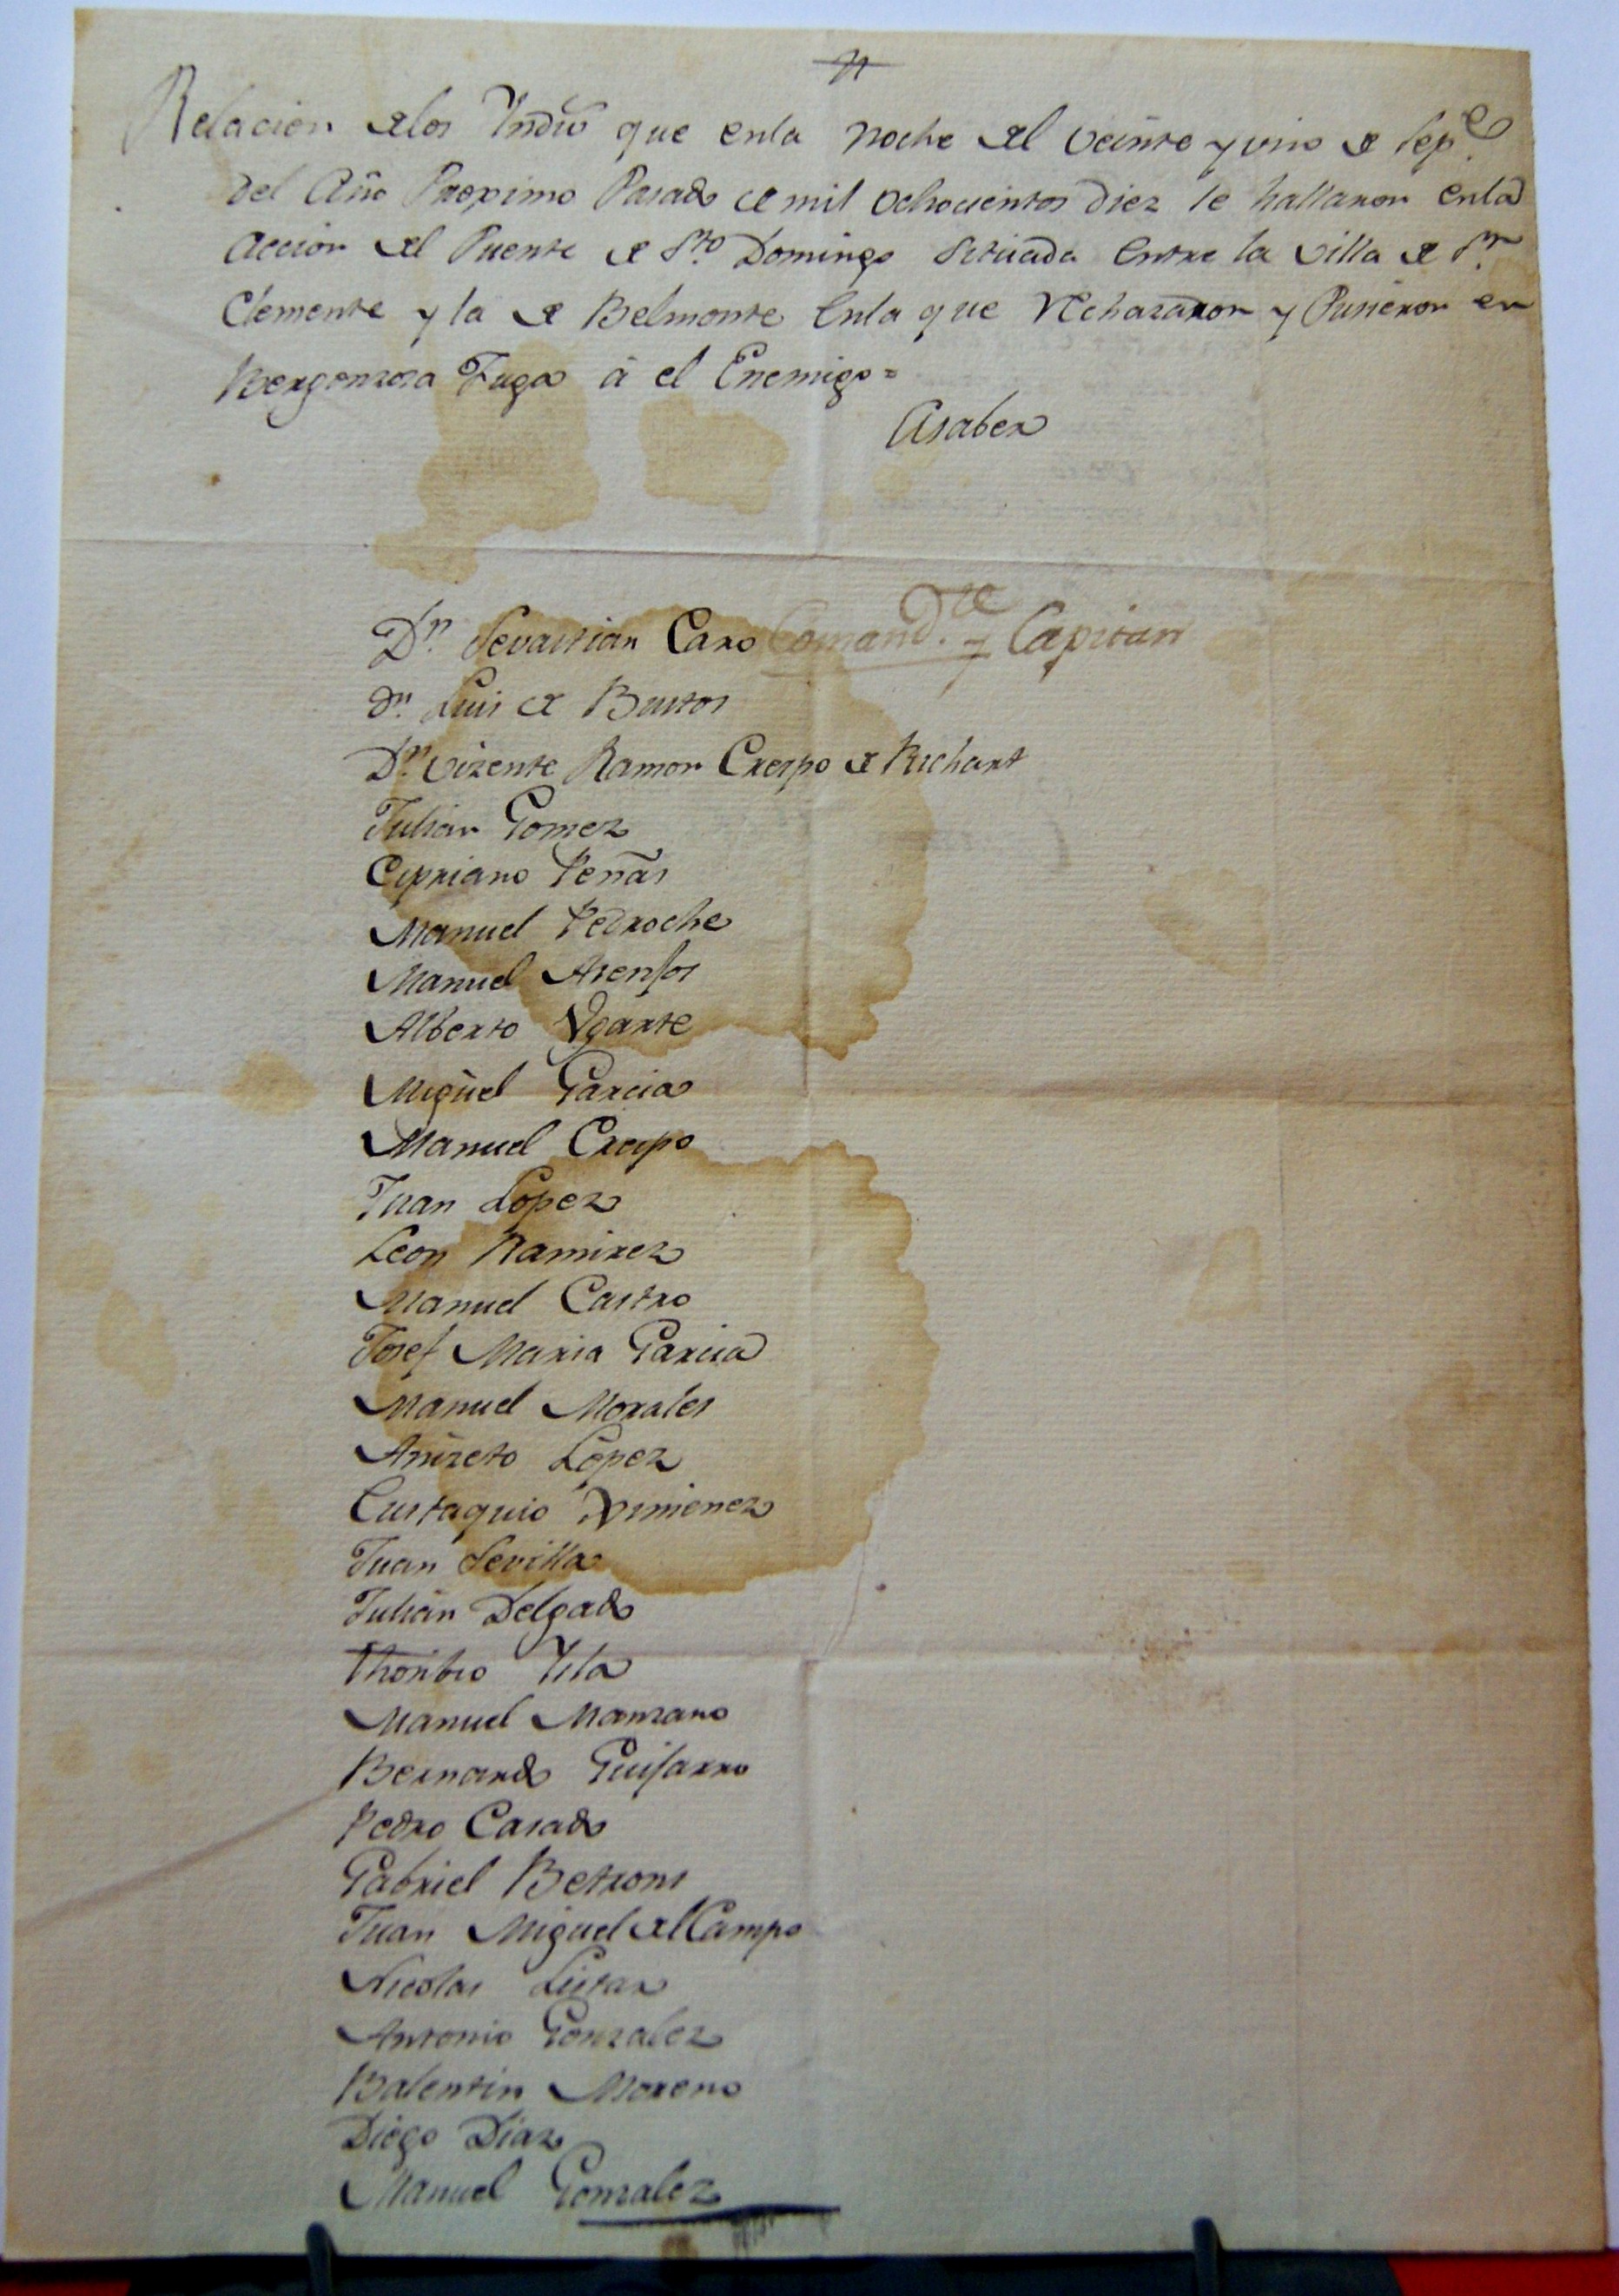 Relacion de los Yndiv.s que enla Noche del veinte y uno de Sep.e
del Año Proximo Pasado de mil ochocientos diez se hallaron enla
Accion del Puente de S.to Domingo Situada Entre la Villa de S.n
Clemente y la de Belmonte Enla que Rechazaron y Pusieron en
Bergonzosa Fuga á el Enemigo=
Asaber
D.n Sevastian Caro Comand.te y Capitan
D.n Luis de Bustos
D.n Vizente Ramon Crespo de Richart
Julian Gomez
Cipriano Peñas
Manuel Pedroche
Manuel Asenjos
Alberto Ygarte
Miguel Garcia
Manuel Crespo
Juan Lopez
Leon Ramirez
Manuel Castro
Josef Maria Garcia
Manuel Morales
Anizeto Lopez
Eustaquio Ximenez
Juan Sevilla
Julian Delgado
Thoribio Ysla
Manuel Manzano
Bernardo Guijarro
Pedro Casado
Gabriel Betrons
Juan Miguel del Campo
Nicolas Listar
Antonio Gonzalez
Balentin Moreno
Diego Diaz
Manuel Gonzalez